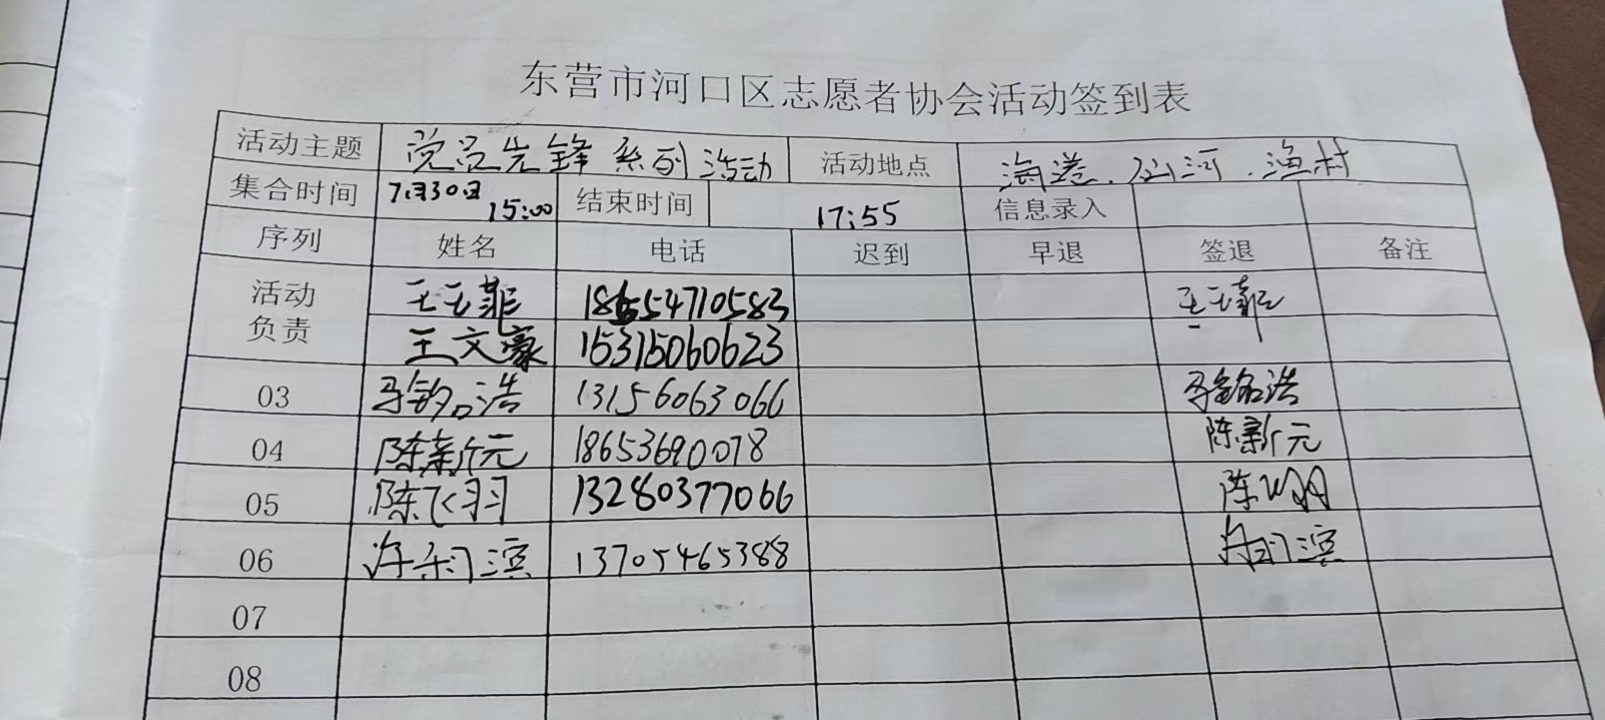 东营市河口区志愿者协会活动签到表
活动主题 党员先锋系列活动 活动地点 海港.沿河.渔村
集合时间 7月30日 15:00 结束时间 17:55 信息录入
序列 姓名 电话 迟到 早退 签退 备注
活动负责 王玉菲 18654710583 王玉菲
王文豪 15315060623
03 马铭浩 13156063066 马铭浩
04 陈新元 18653690078 陈新元
05 陈飞羽 13280377066 陈飞羽
06 许利滨 13705465388 许利滨
07
08